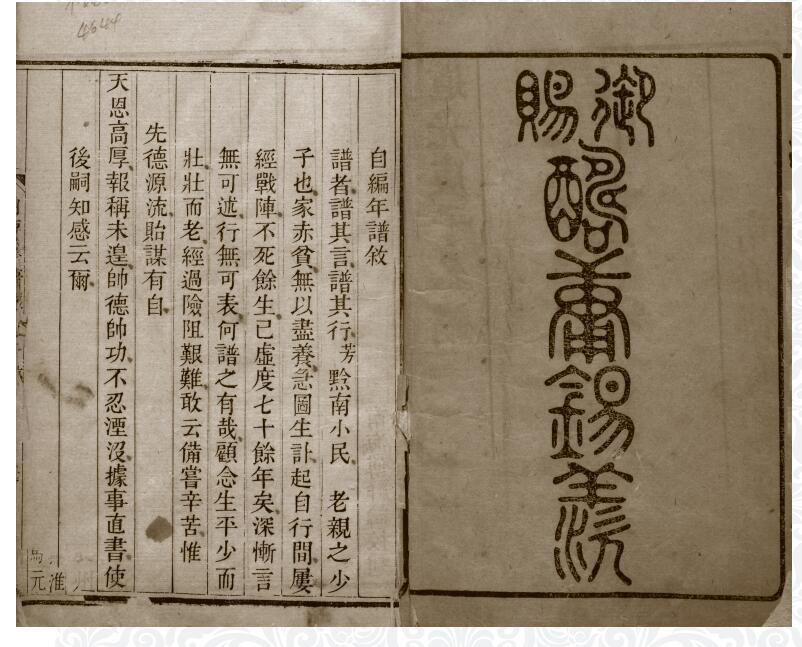 御賜
錫羨
自編年譜敘
譜者譜其言譜其行芳黔南小民 老親之少
子也家赤貧無以盡養急圖生計起自行間屢
經戰陣不死餘生已虛度七十餘年矣深慚言
無可述行無可表何譜之有哉顧念生平少而
壯壯而老經過險阻艱難敢云備嘗辛苦惟
先德源流貽謀有自
天恩高厚報稱未遑帥德帥功不忍湮沒據事直書使
後嗣知感云爾
淮
元
4644